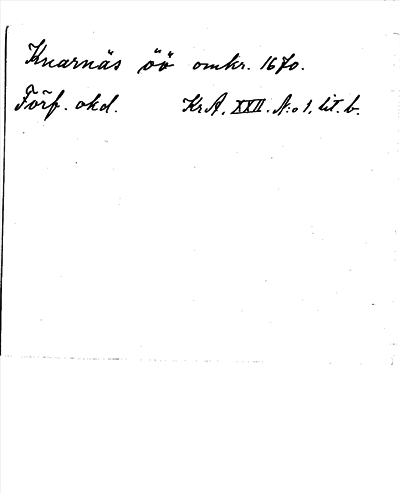 Knarnäs öö omkr. 1670.
Förf. okd. KrA, XXII. N:o 1, lit. b.